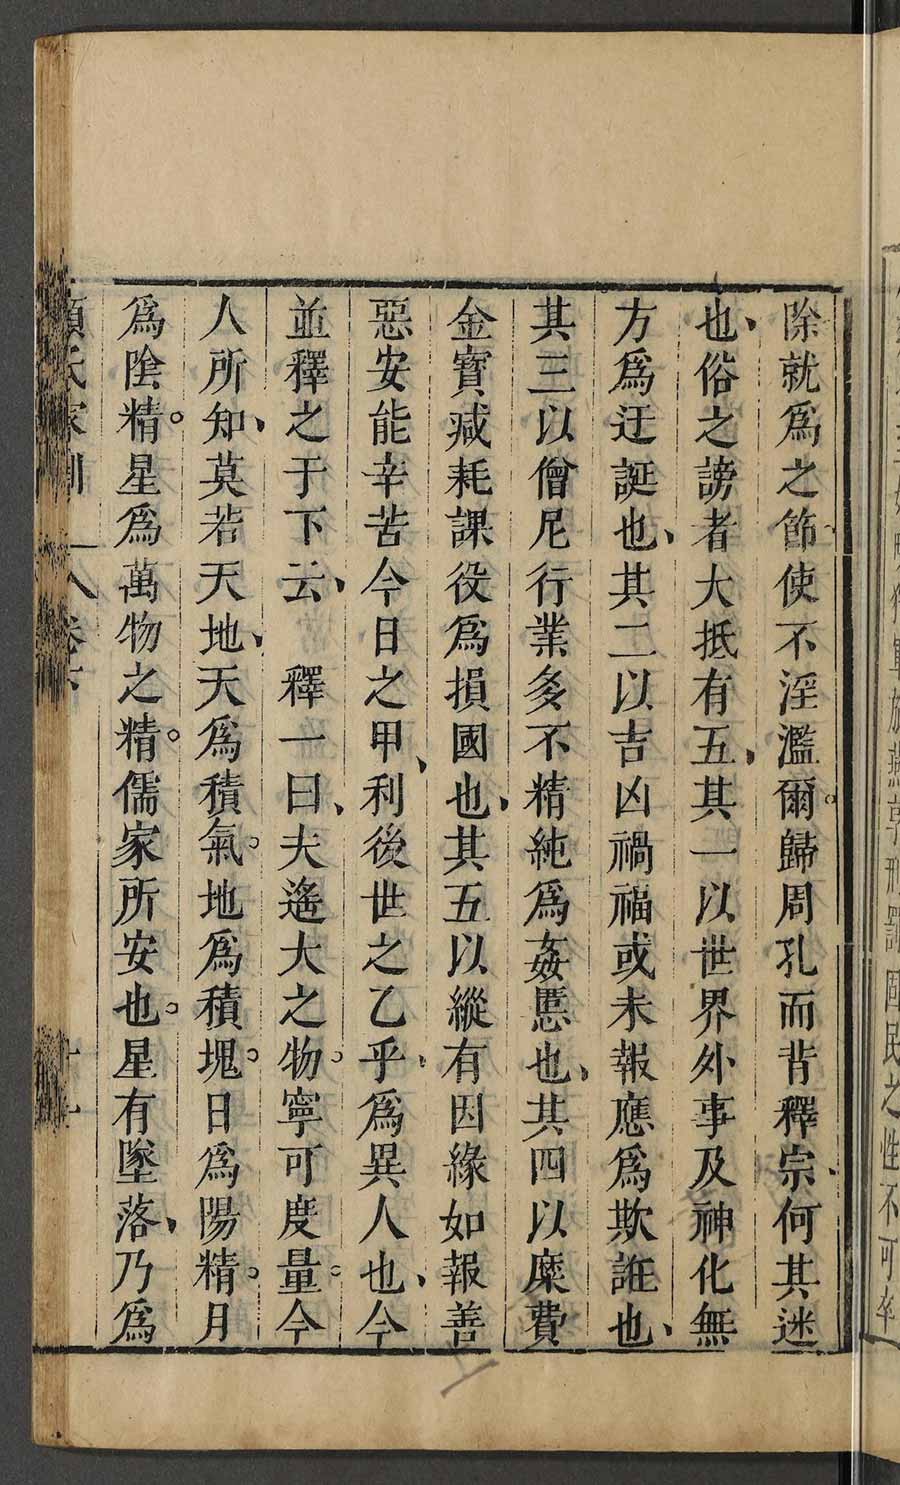 除就爲之節使不淫濫爾。歸周孔而背釋宗、何其迷
也、俗之謗者大抵有五、其一以世界外事及神化無
方爲迂誕也、其二以吉凶禍福或未報應爲欺誑也、
其三以僧尼行業多不精純爲姦慝也、其四以糜費
金寶減耗課役爲損國也、其五以縱有因緣如報善
惡安能辛苦今日之甲、利後世之乙乎、爲異人也、今
並釋之于下云、 釋一曰、夫遙大之物。寧可度量。今
人所知、莫若天地、天爲積氣。地爲積塊。日爲陽精。月
爲陰精。星爲萬物之精。儒家所安也。星有墜落、乃爲
顏氏家訓 卷六
之性不可卒